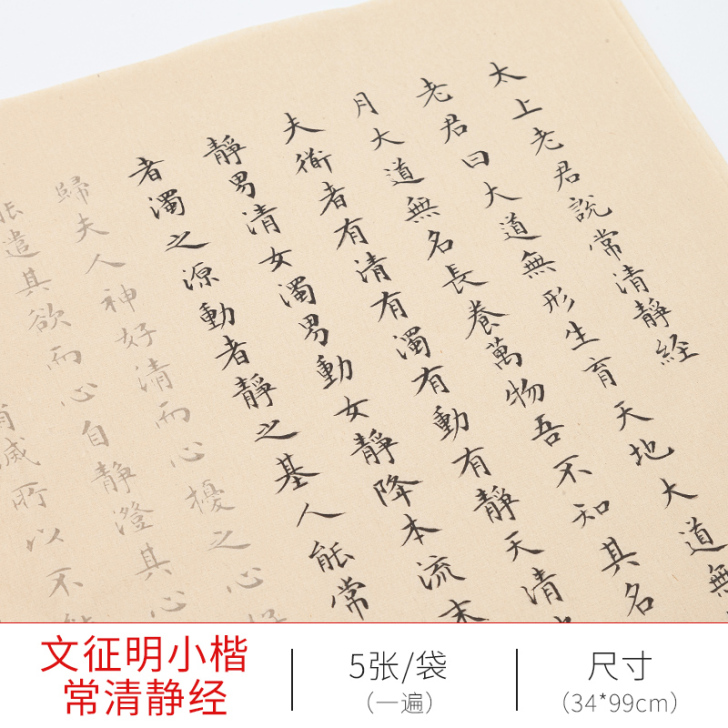 太上老君說常清靜経
老君曰大道無形生育天地大道無
月大道無名長養萬物吾不知其名
夫衜者有清有濁有動有靜天清
靜男清女濁男動女靜降本流末
者濁之源動者靜之基人能常
歸夫人神好清而心擾之心
能遣其欲而心自靜澄其心
滅所以不能
文征明小楷
常清静经
5张/袋
（一遍）
尺寸
（34*99cm）